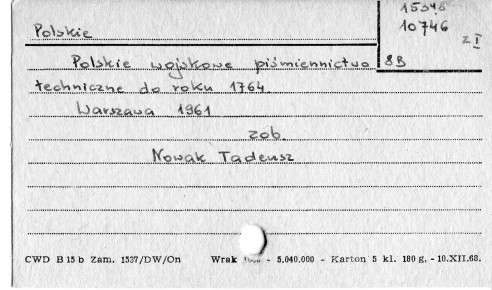 10746
z I
Polskie
Polskie wojskowe piśmiennictwo 8B
techniczne do roku 1764.
Warszawa 1961
zob.
Nowak Tadeusz
CWD B 15 b Zam. 1537/DW/On Wrak - 5.040.000 - Karton 5 kl. 180 g. - 10.XII.68.